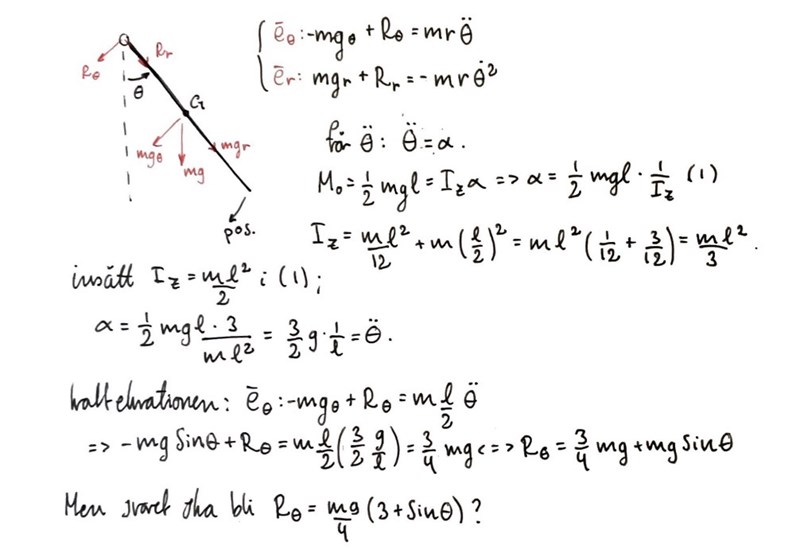 ē_θ: -mg_θ + R_θ = mrθ̈
ē_r: mg_r + R_r = -mrθ̇²
R_r
R_θ
θ
G
mg_θ
mg
mg_r
pos.
för θ̈: θ̈ = α.
M_o = 1/2 mgl = I_z α => α = 1/2 mgl · 1/I_z (1)
I_z = ml²/12 + m(l/2)² = ml²(1/12 + 3/12) = ml²/3.
insätt I_z = ml²/2 i (1);
α = 1/2 mgl · 3/ml² = 3/2 g · 1/l = θ̈.
kraftekvationen: ē_θ: -mg_θ + R_θ = m l/2 θ̈
=> -mg Sinθ + R_θ = m l/2 (3/2 g/l) = 3/4 mg <=> R_θ = 3/4 mg + mg Sinθ
Men svaret ska bli R_θ = mg/4 (3 + Sinθ)?